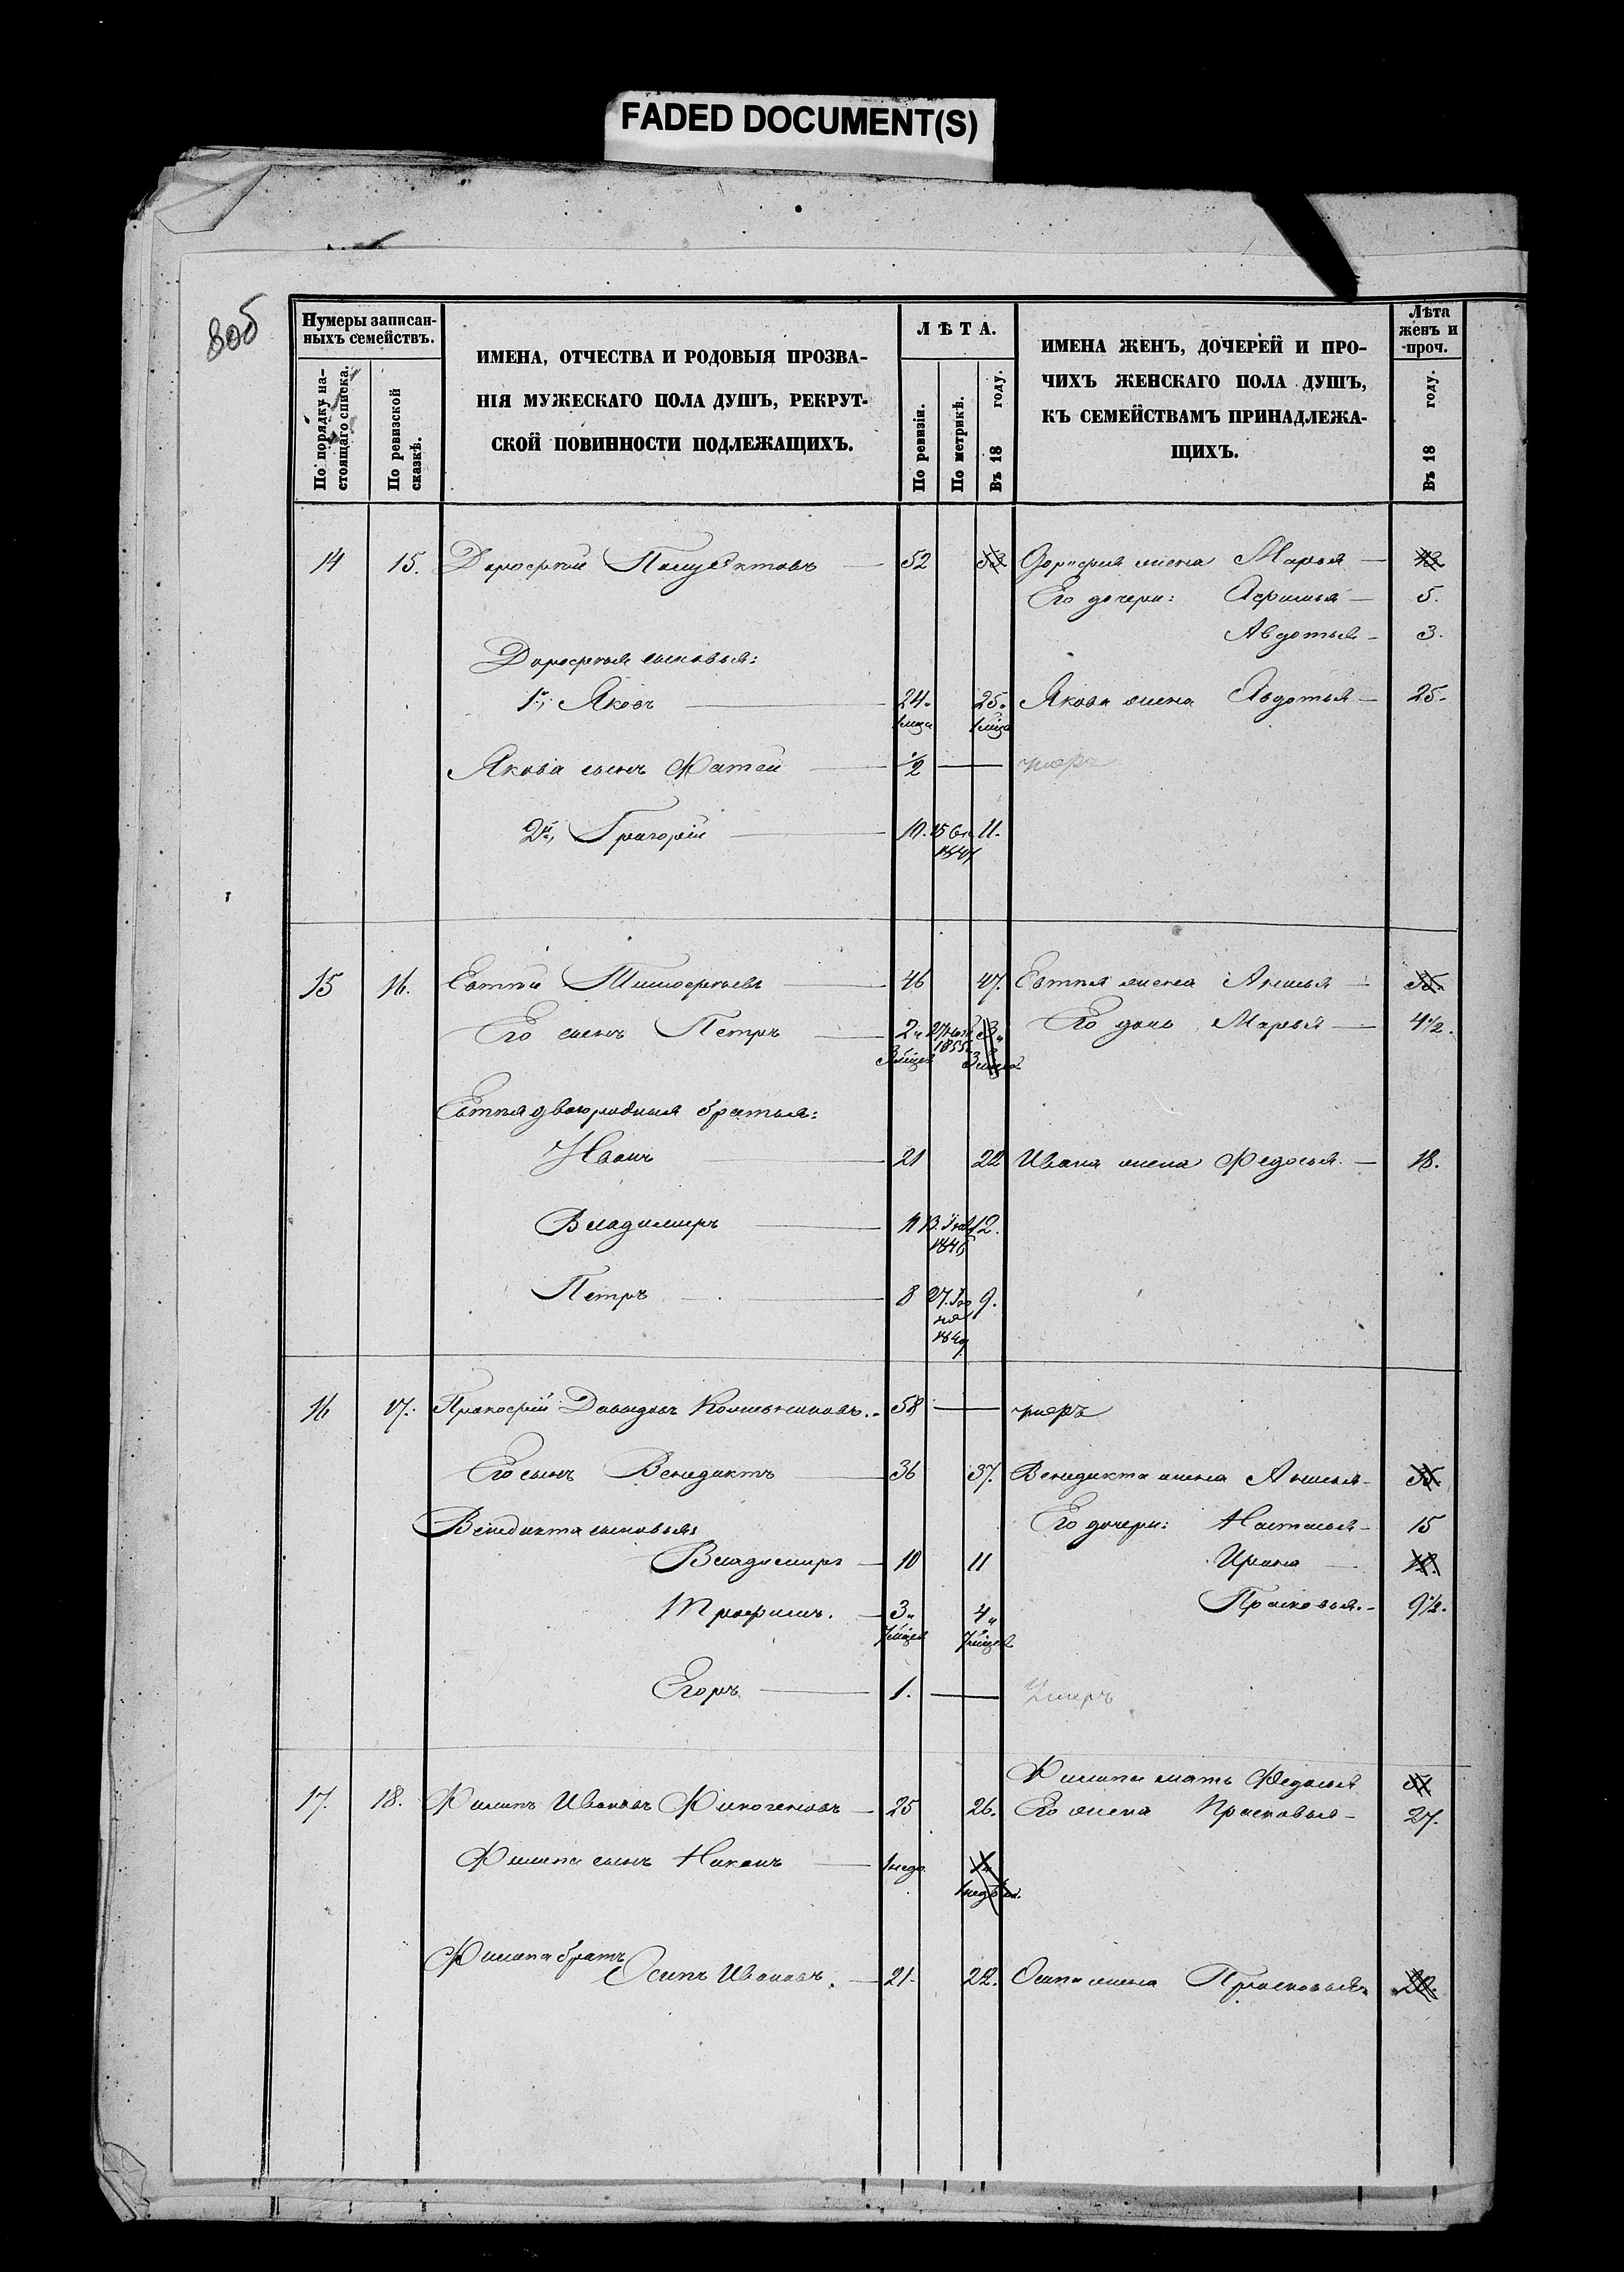 FADED DOCUMENT(S)
806
Нумеры записан-
ныхъ семействъ.
По порядку на-
стоящаго списка.
По ревизской
сказкѣ.
ИМЕНА, ОТЧЕСТВА И РОДОВЫЯ ПРОЗВА-
НІЯ МУЖЕСКАГО ПОЛА ДУШЪ, РЕКРУТ-
СКОЙ ПОВИННОСТИ ПОДЛЕЖАЩИХЪ.
ЛѢТА.
По ревизіи.
По метрикѣ.
Въ 18 году.
ИМЕНА ЖЕНЪ, ДОЧЕРЕЙ И ПРО-
ЧИХЪ ЖЕНСКАГО ПОЛА ДУШЪ,
КЪ СЕМЕЙСТВАМЪ ПРИНАДЛЕЖА-
ЩИХЪ.
Лѣта
женъ и
проч.
Въ 18 году.
14 15. Дорофей Полуектовъ 52 53 Дорофея жена Марья 42
Его дочери: Афимья 5.
Авдотья 3.
Дорофея сыновья:
1й, Яковъ 24. 25. Якова жена Авдотья 25.
1 мца 1 мца
Якова сынъ Фатей ½ умеръ
2й, Григорій 10. 11.
1847
15 16. Евтій Тимофеевъ 46 47. Евтія жена Анисья 35.
Его сынъ Петръ 2 3 Его дочь Марья 4½.
1855
Евтія двоюродныя братья:
Иванъ 21 22 Ивана жена Федосья 18.
Владимиръ 11 13. 12.
1846
Петръ 8 27. Iю 9.
ня
1849
16 17. Прокофій Давыдовъ Колпышниковъ. 58 умеръ
Его сынъ Венедиктъ 36 37. Венедикта жена Анисья 35.
Венедикта сыновья: Его дочери: Настасья 15
Владимиръ 10 11 Ирина 12.
Трофимъ. 3 4 Прасковья. 9½.
7 мцев 7 мцев
Егоръ 1. Умеръ
Филипа мать Федосья 51
17. 18. Филипъ Ивановъ Финогеновъ 25 26. Его жена Прасковья 27.
Филипа сынъ Наконъ 1 неде. 1
Филипа братъ
Осипъ Ивановъ. 21. 22. Осипа жена Прасковья 20.